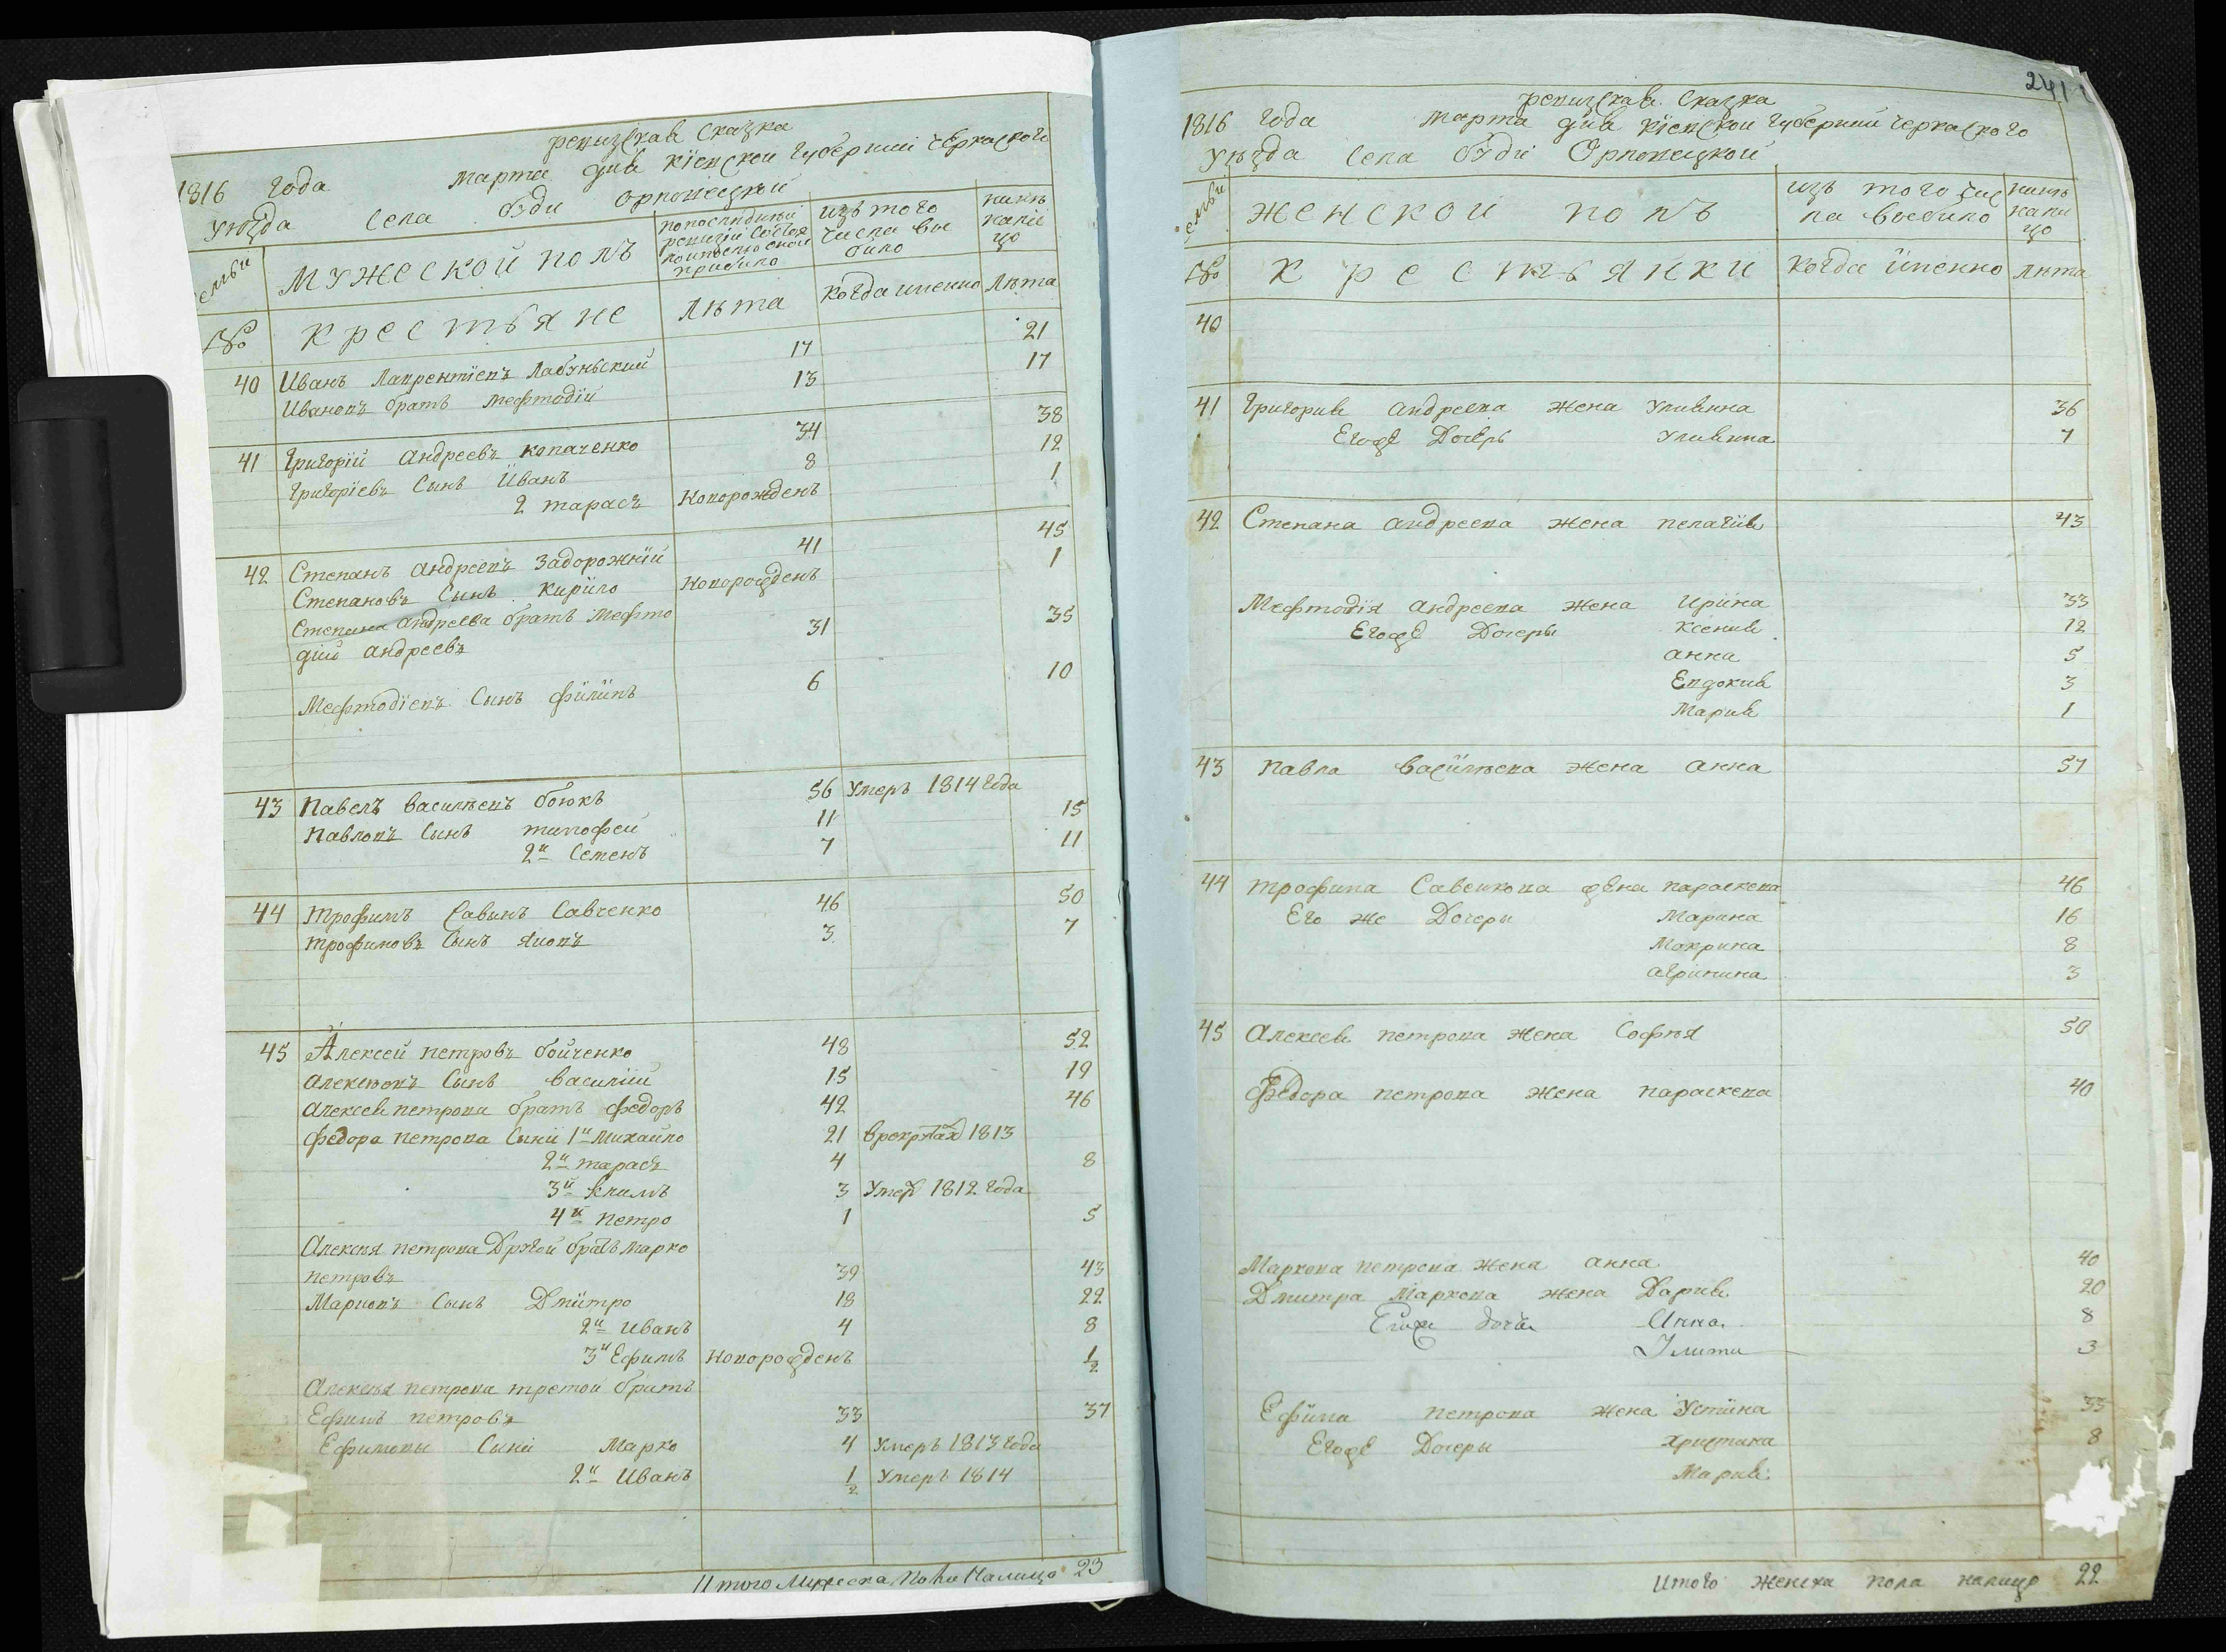 ревизская Сказка
1816 года марта дня Кіевской Губерниі Черкаского
Уезда Села буди Орловецкой
Семьи
Мужеской полъ
по последней ревизіи состояло и после оной прибило
изъ того числа выбило
ныне налицо
№
крестьяне
лѣта
когда именно
лѣта
40 Иванъ Лаврентіевъ Лабуньский 17 21
Ивановъ братъ Мефтодій 13 17
41 Григорій андреевъ копаченко 34 38
Григоріевъ Сынъ Иванъ 8 12
2 тарасъ новорожденъ 1
42 Степанъ андреевъ Задорожній 41 45
Степановъ Сынъ Кирило новорожденъ 1
Степана андреева братъ Мефто
дий андреевъ 31 35
Мефтодіевъ Сынъ филипъ 6 10
43 Павелъ васильевъ боюкъ 56 Умеръ 1814 года
Павловъ Сынъ тимофей 11 15
2й Семенъ 7 11
44 трофимъ Савинъ Савченко 46 50
трофимовъ Сынъ яковъ 3 7
45 Алексей петровъ бойченко 48 52
алексѣевъ Сынъ василій 15 19
алексея петрова братъ федоръ 42 46
федора петрова Сыни 1й Михайло 21 в рекрутах 1813
2й тарасъ 4 8
3й климъ 3 Умеръ 1812 года
4й петро 1 5
алексѣя петрова Другой братъ Марко
петровъ 39 43
Марковъ Сынъ Дмитро 18 22
2й Иванъ 4 8
3й Ефимъ новорожденъ 1/2
алексѣя петрова третой братъ
Ефимъ петровъ 33 37
Ефимовы Сыни Марко 4 Умеръ 1813 года
2й Иванъ 1/2 Умеръ 1814
Итого Мужеска пола налицо 23
241
ревизская Сказка
1816 года марта дня Кіевской Губерниі Черкаского
Уезда Села буди Орловецкой
Семьи
Женской полъ
изъ того числа выбило
ныне налицо
№
крестьянки
когда именно
лѣта
40
41 Григория андреева жена Улиянна 36
Егоже Дочерь Улиянна 7
42 Степана андреева жена пелагия 43
Мефтодія андреева жена Ирина 33
Егоже Дочеры Ксения 12
анна 5
Евдокия 3
Мария 1
43 Павла васильева жена анна 57
44 трофима Савенкова жена параскева 46
Его же Дочеры Марина 16
Макрина 8
агрипина 3
45 алексея петрова жена Софѣя 50
федора петрова жена параскева 40
Маркова петрова жена анна 40
Дмитра Маркова жена Дария 20
Егоже дочь Анна 8
3
Ефима петрова жена Устина 33
Егоже Дочеры христина 8
Мария
Итого женска пола налицо 22